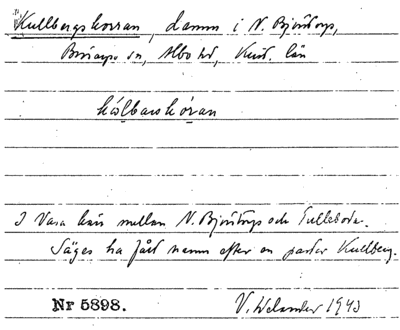 Kullbergskorran, damm i N. Björstorps,
sn, Albo hd, Krist. län
I Vasa hus mellan N. Björstorps och Tulleboda.
Säges ha fått namn efter en pastor Kullberg.
Nr 5898. V. Welander 1943